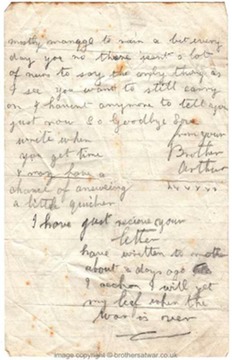 mostly manage to rain a bit every
day you no there isent a lot
of news to say the only thing as
I see you want to still carry
on I havent anymore to tell you
just now so Goodbye
write when from your
you get time Brother
I may have a Arthur
chance of answering xxxxxx
a little quicker
I have just recieve your
letter
have written to mother
about 2 days ago
I reckon I will get
my leg when the
War is over
image copyright © brothersatwar.co.uk